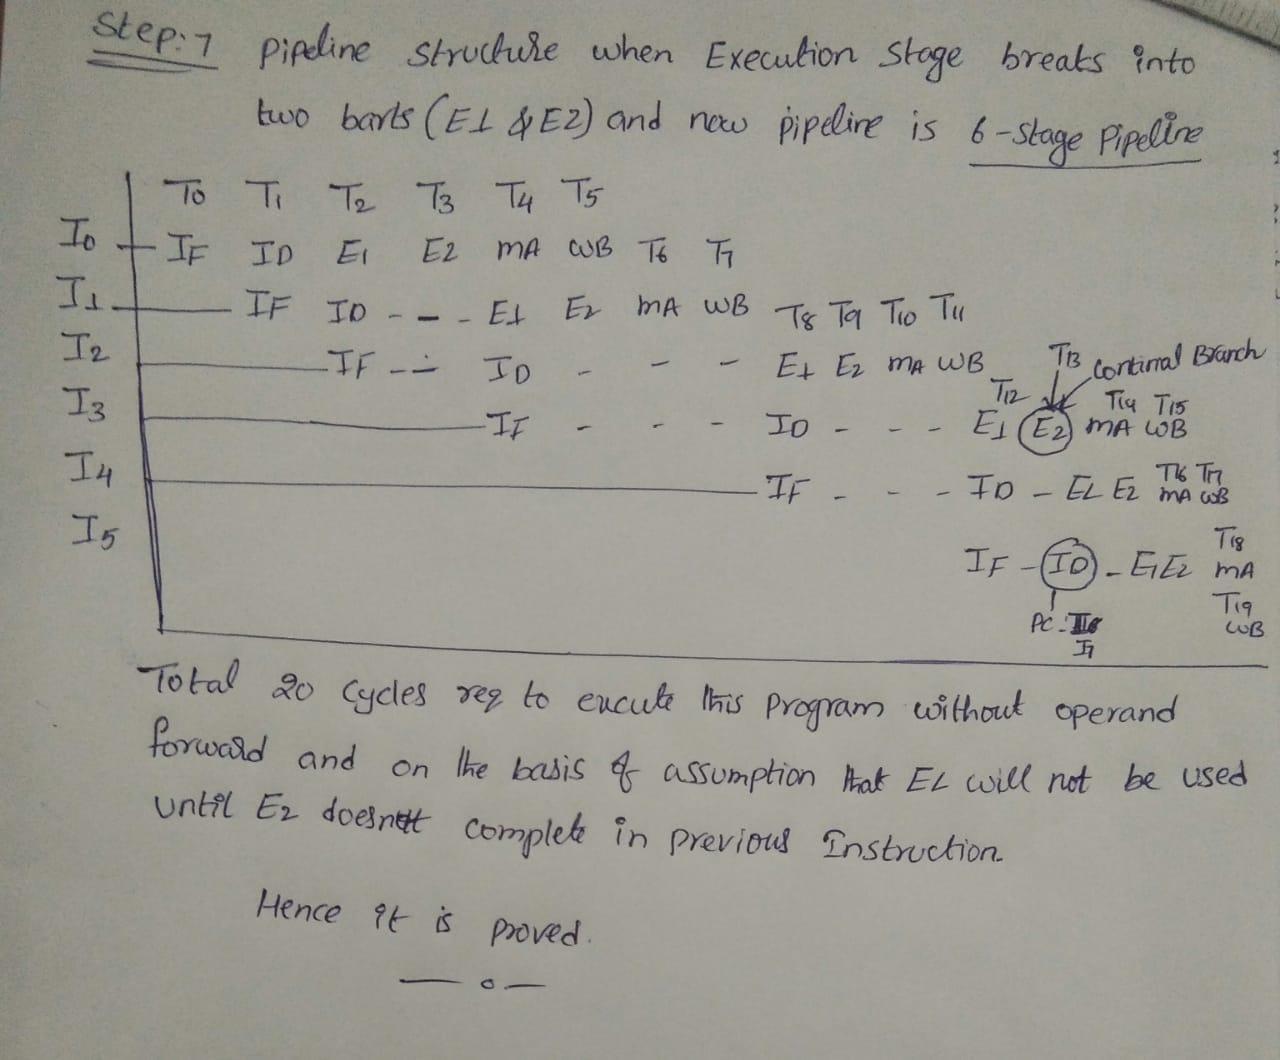 Step:7 Pipeline Structure when Execution Stage breaks into
two barts (E1 & E2) and new pipeline is 6-Stage Pipeline
T0 T1 T2 T3 T4 T5
I0 IF ID E1 E2 MA WB T6 T7
I1 IF ID - - - E1 E2 MA WB T8 T9 T10 T11
I2 IF - - ID - - - E1 E2 MA WB T13 Continal Branch
T12 T14 T15
I3 IF - - - ID - - - E1 E2 MA WB
T16 T17
I4 IF - - - ID - E1 E2 MA WB
T18
I5 IF - ID - E1 E2 MA
T19
PC: WB
I7
Total 20 Cycles req to excute this Program without operand
forward and on the basis of assumption that E1 will not be used
until E2 doesnot complete in previous Instruction.
Hence it is proved.